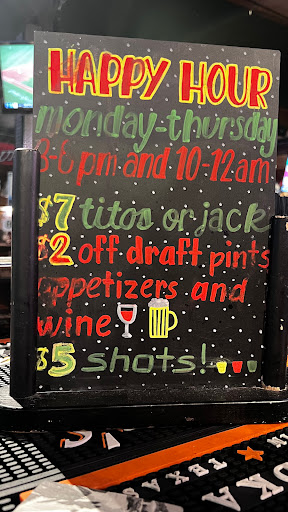 HAPPY HOUR
monday-thursday
3-6 pm and 10-12am
$7 titos or jack
$2 off draft pints
appetizers and
wine
$5 shots!
TEXAS